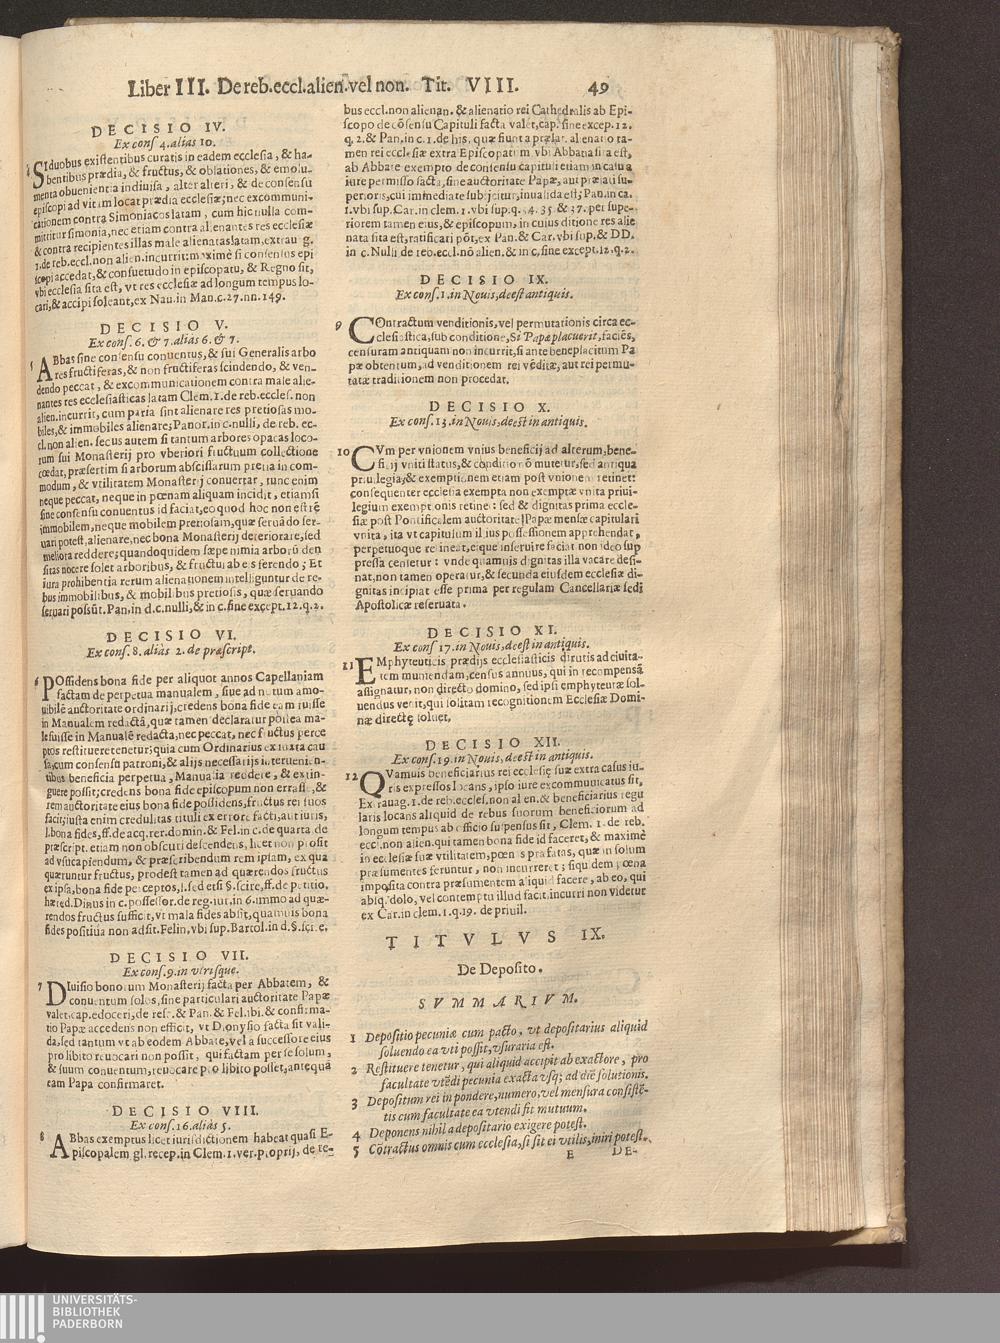 Liber III. De reb. eccl. alien. vel non. Tit. VIII. 49
DECISIO IV.
Ex cons. 4. alias 10.
4 SI duobus existentibus curatis in eadem ecclesia, & ha-
bentibus prædia, & fructus, & oblationes, & emolu-
menta obuenientia indiuisa, alter alteri, & de consensu
episcopi ad vitam locat prædia ecclesiæ; nec excommuni-
cationem contra Simoniacos latam, cum hic nulla com-
mittitur simonia, nec etiam contra alienantes res ecclesiæ
& contra recipientes illas male alienatas latam, extrau g.
1. de reb. eccl. non alien. incurrit: maximè si consensus epi
scopi accedat, & consuetudo in episcopatu, & Regno sit,
vbi ecclesia sita est, vt res ecclesiæ ad longum tempus lo-
cari, & accipi soleant, ex Nau. in Man. c. 27. nn. 149.
DECISIO V.
Ex cons. 6. & 7. aliàs 6. & 7.
5 ABbas sine consensu conuentus, & sui Generalis arbo
res fructiferas, & non fructiferas scindendo, & ven-
dendo peccat, & excommunicationem contra male alie-
nantes res ecclesiasticas latam Clem. 1. de reb. eccles. non
alien. incurrit, cum paria sint alienare res pretiosas mo-
biles, & immobiles alienare; Panor. in c. nulli, de reb. ec-
cl. non alien. secus autem si tantum arbores opacas loco-
rum sui Monasterij pro vberiori fructuum collectione
cædat, præsertim si arborum abscissarum pretia in com-
modum, & vtilitatem Monasterij conuertat, tunc enim
neque peccat, neque in pœnam aliquam incidit, etiamsi
sine consensu conuentus id faciat, eo quod hoc non est rẽ
immobilem, neque mobilem pretiosam, quæ seruãdo ser-
uari potest, alienare, nec bona Monasterij deteriorare, sed
meliora reddere; quandoquidem sæpe nimia arborũ den
sitas nocere solet arboribus, & fructui ab eis ferendo; Et
iura prohibentia rerum alienationem intelliguntur de re-
bus immobilibus, & mobilibus pretiosis, quæ seruando
seruari possũt. Pan. in d. c. nulli, & in c. sine except. 12. q. 2.
DECISIO VI.
Ex cons. 8. aliàs 2. de præscript.
6 POssidens bona fide per aliquot annos Capellaniam
factam de perpetua manualem, siue ad nutum amo-
uibilẽ auctoritate ordinarij, credens bona fide eam fuisse
in Manualem redactã, quæ tamen declaratur postea ma-
le fuisse in Manualẽ redacta, nec peccat, nec fructus perce
ptos restituere tenetur; quia cum Ordinarius ex iusta cau
sa, cum consensu patroni, & alijs necessarijs interuenien-
tibus beneficia perpetua, Manualia reddere, & extin-
guere possit; credens bona fide episcopum non errasse, &
rem auctoritate eius bona fide possidens, fructus rei suos
facit; iusta enim credulitas tituli ex errore facti, aut iuris,
l. bona fides, ff. de acq. rer. domin. & Fel. in c. de quarta de
præscript. etiam non obscuri descendens, licet non prosit
ad vsucapiendum, & præscribendum rem ipsam, ex qua
quæruntur fructus, prodest tamen ad quærendos fructus
ex ipsa, bona fide perceptos, l. sed etsi §. scire, ff. de petitio.
hæred. Dinus in c. possessor. de reg. iur. in 6. immo ad quæ-
rendos fructus sufficit, vt mala fides absit, quamuis bona
fides positiua non adsit. Felin, vbi sup. Bartol. in d. §. sci. e.
DECISIO VII.
Ex cons. 9. in vtrisque.
7 DIuisio bonorum Monasterij facta per Abbatem, &
conuentum solos, sine particulari auctoritate Papæ
valet, cap. edoceri, de resc. & Pan. & Fel. ibi. & confirma-
tio Papæ accedens non efficit, vt Dionysio facta sit vali-
da, sed tantum vt ab eodem Abbate, vel a successore eius
pro libito reuocari non possit, qui factam per se solum,
& suum conuentum, reuocare pro libito posset, antequã
eam Papa confirmaret.
DECISIO VIII.
Ex cons. 16. aliàs 5.
8 ABbas exemptus licet iurisdictionem habeat quasi E-
piscopalem gl. recep. in Clem. 1. ver. proprij, de re-
bus eccl. non alienan. & alienatio rei Cathedralis ab Epi-
scopo de cõsensu Capituli facta valet, cap. sine excep. 12.
q. 2. & Pan. in c. 1. de his, quæ fiunt a prælat. alienatio ta-
men rei ecclesiæ extra Episcopatum vbi Abbatia sita est,
ab Abbate exempto de consensu capituli etiam in casu a
iure permisso facta, sine auctoritate Papæ, aut prælati su-
perioris, cui immediate subijcitur, inualida est; Pan. in ca.
1. vbi sup. Car. in clem. 1. vbi sup. q. 4. 35 & 37. per supe-
riorem tamen eius, & episcopum, in cuius ditione res alie
nata sita est, ratificari põt, ex Pan. & Car. vbi sup. & DD.
in c. Nulli de reb. eccl. nõ alien. & in c, sine except. 12. q. 2.
DECISIO IX.
Ex cons. 1. in Nouis, deest antiquis.
9 COntractum venditionis, vel permutationis circa ec-
clesiastica, sub conditione, Si Papæ placuerit, faciẽs,
censuram antiquam non incurrit, si ante beneplacitum Pa
pæ obtentum, ad venditionem rei vẽditæ, aut rei permu-
tatæ traditionem non procedat.
DECISIO X.
Ex cons. 13. in Nouis, deest in antiquis.
10 CVm per vnionem vnius beneficij ad alterum, bene-
ficij vniti status, & conditio nõ mutetur, sed antiqua
priuilegia, & exemptionem etiam post vnionem retinet:
consequenter ecclesia exempta non exemptæ vnita priui-
legium exemptionis retinet: sed & dignitas prima eccle-
siæ post Pontificalem auctoritate Papæ mensæ capitulari
vnita, ita vt capitulum illius possessionem apprehendat,
perpetuoque retineat, eique inseruire faciat non ideo sup
pressa censetur: vnde quamuis dignitas illa vacare desi-
nat, non tamen operatur, & secunda eiusdem ecclesiæ di-
gnitas incipiat esse prima per regulam Cancellariæ sedi
Apostolicæ reseruata.
DECISIO XI.
Ex cons 17. in Nouis, deest in antiquis.
11 EMphyteuticis prædijs ecclesiasticis dirutis ad ciuita-
tem muniendam, census annuus, qui in recompensã
assignatur, non directo domino, sed ipsi emphyteutæ sol-
uendus venit, qui solitam recognitionem Ecclesiæ Domi-
næ directę soluet.
DECISIO XII.
Ex cons. 19. in Nouis, deest in antiquis.
12 QVamuis beneficiarius rei ecclesię suæ extra casus iu-
ris expressos locans, ipso iure excommunicatus sit,
Extrauag. 1. de reb. eccles. non alien. & beneficiarius regu
laris locans aliquid de rebus suorum beneficiorum ad
longum tempus ab officio suspensus sit, Clem. 1. de reb.
eccl. non alien. qui tamen bona fide id faceret, & maximè
in ecclesiæ suæ vtilitatem, pœnas præfatas, quæ in solum
præsumentes feruntur, non incurreret; siquidem pœna
imposita contra præsumentem aliquid facere, ab eo, qui
absq; dolo, vel contemptu illud facit, incurri non videtur
ex Car. in clem. 1. q. 19. de priuil.
TITVLVS IX.
De Deposito.
SVMMARIVM.
1 Depositio pecuniæ cum pacto, vt depositarius aliquid
soluendo ea vti possit, vsuraria est.
2 Restituere tenetur, qui aliquid accipit ab exactore, pro
facultate vtẽdi pecunia exacta vsq; ad diẽ solutionis.
3 Depositum rei in pondere, numero, vel mensura consistẽ-
tis cum facultate ea vtendi fit mutuum.
4 Deponens nihil a depositario exigere potest.
5 Cõtractus omnis cum ecclesia, si sit ei vtilis, iniri potest.
E DE-
UNIVERSITÄTS-
BIBLIOTHEK
PADERBORN